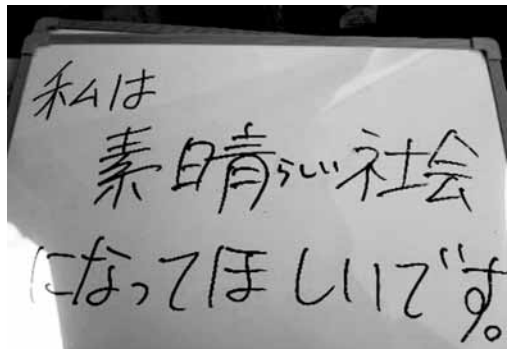 私は
素晴らしい社会
になってほしいです。